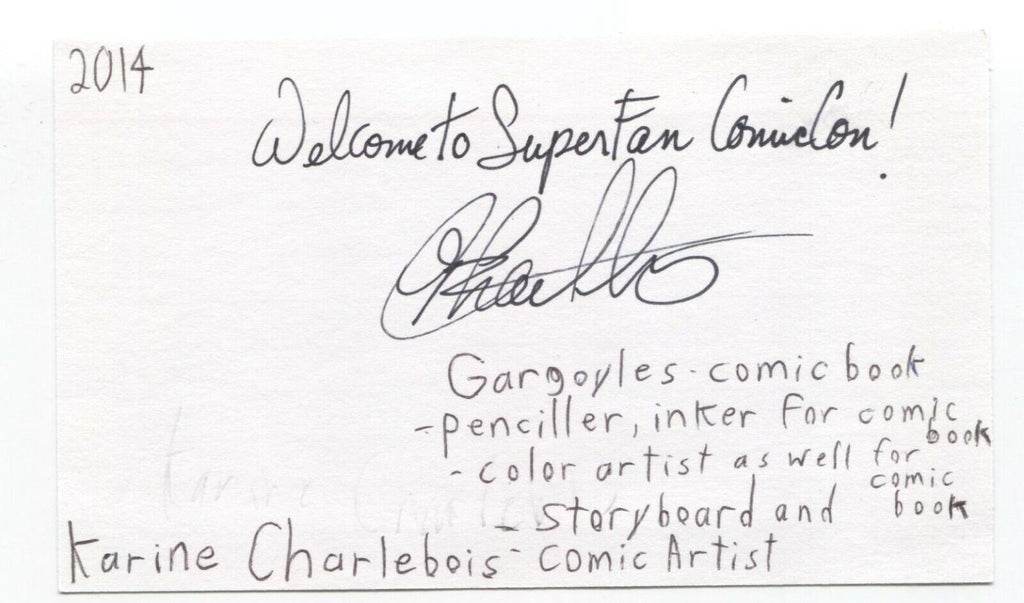 2014
Welcome to SuperFan ComicCon!
Gargoyles - comic book
- penciller, inker for comic book
- color artist as well for comic book
- storyboard and
Karine Charlebois - comic Artist